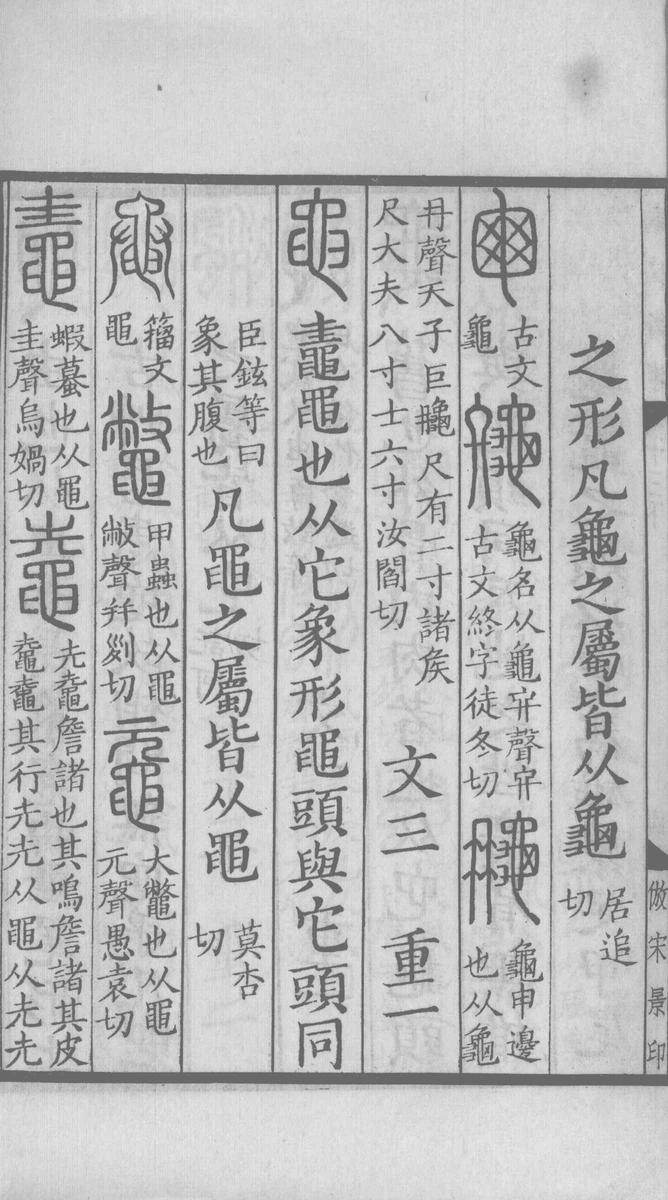 之形凡龜之屬皆从龜居追切
古文龜
龜名从龜𠔾聲𠔾古文終字徒冬切
龜甲邊也从龜
冄聲天子巨䶲尺有二寸諸矦尺大夫八寸士六寸汝閻切
文三 重一
黽 鼃黽也从它象形黽頭與它頭同
臣鉉等曰象其腹也凡黽之屬皆从黽莫杏切
籒文黽
鼈 甲蟲也从黽敝聲并𠛱切
黿 大鼈也从黽元聲愚袁切
鼃 蝦蟇也从黽圭聲烏媧切
𪓰 𠑹𪓰詹諸也其鳴詹諸其皮𪓰𪓰其行𠑹𠑹从黽从𠑹𠑹
倣宋景印